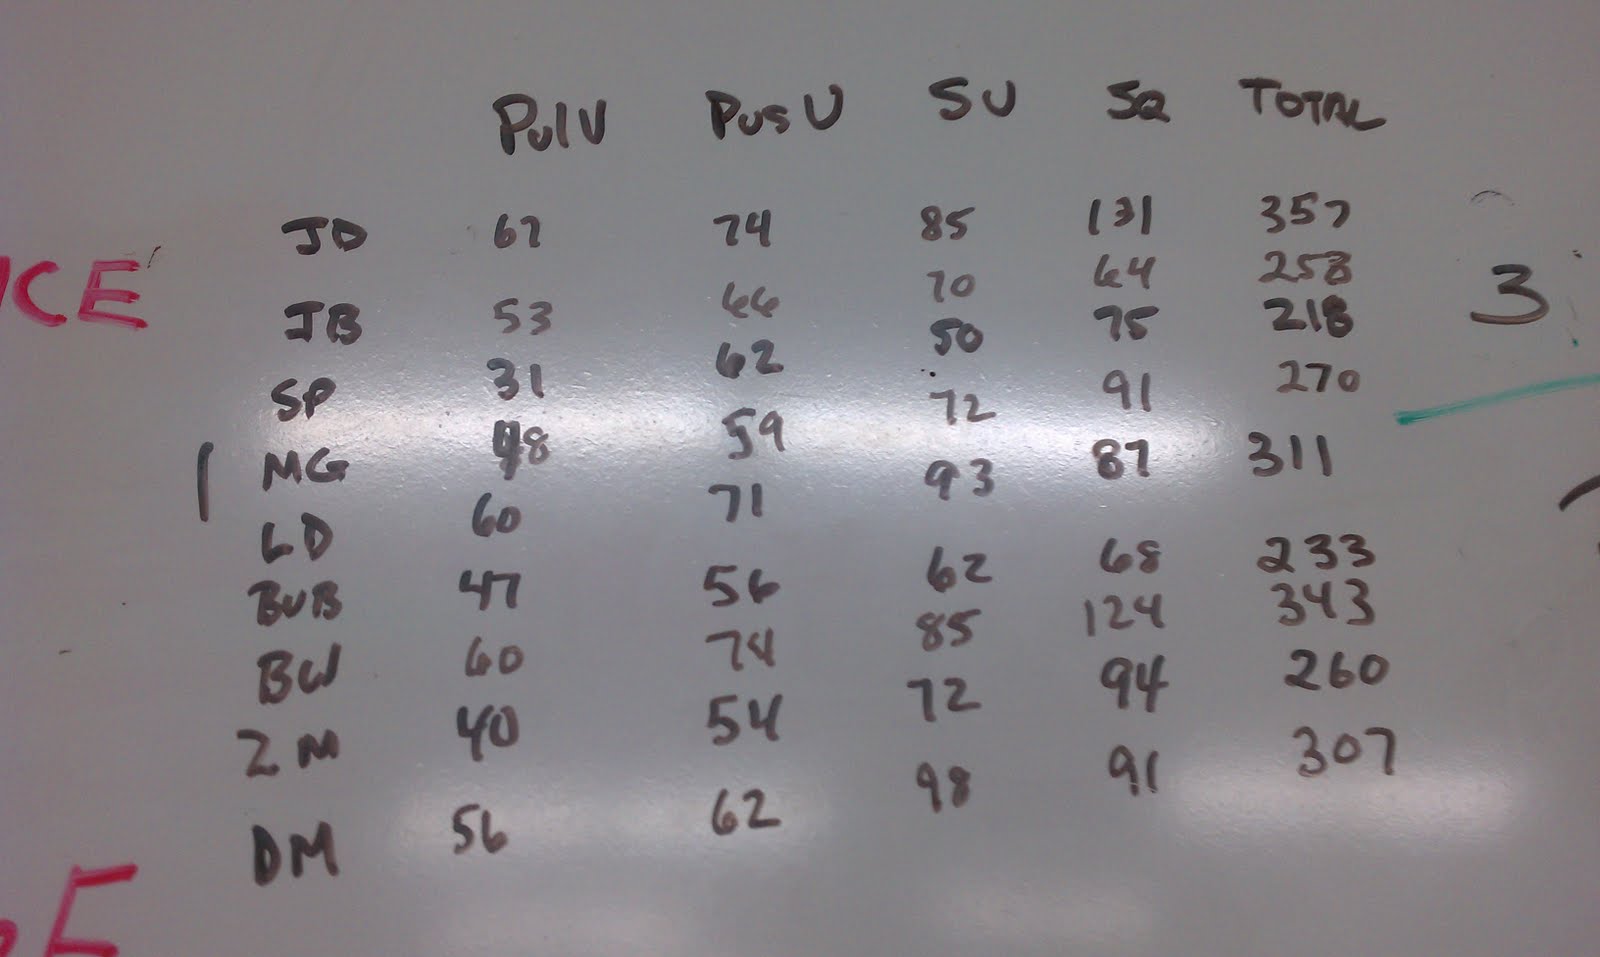 PulU PusU SU SQ TOTAL
JD 67 74 85 131 357
JB 53 66 70 64 253
SP 31 62 50 75 218
MG 48 59 72 91 270
LD 60 71 93 87 311
BUB 47 56 62 68 233
BW 60 74 85 124 343
ZM 40 54 72 94 260
DM 56 62 98 91 307
CE
3